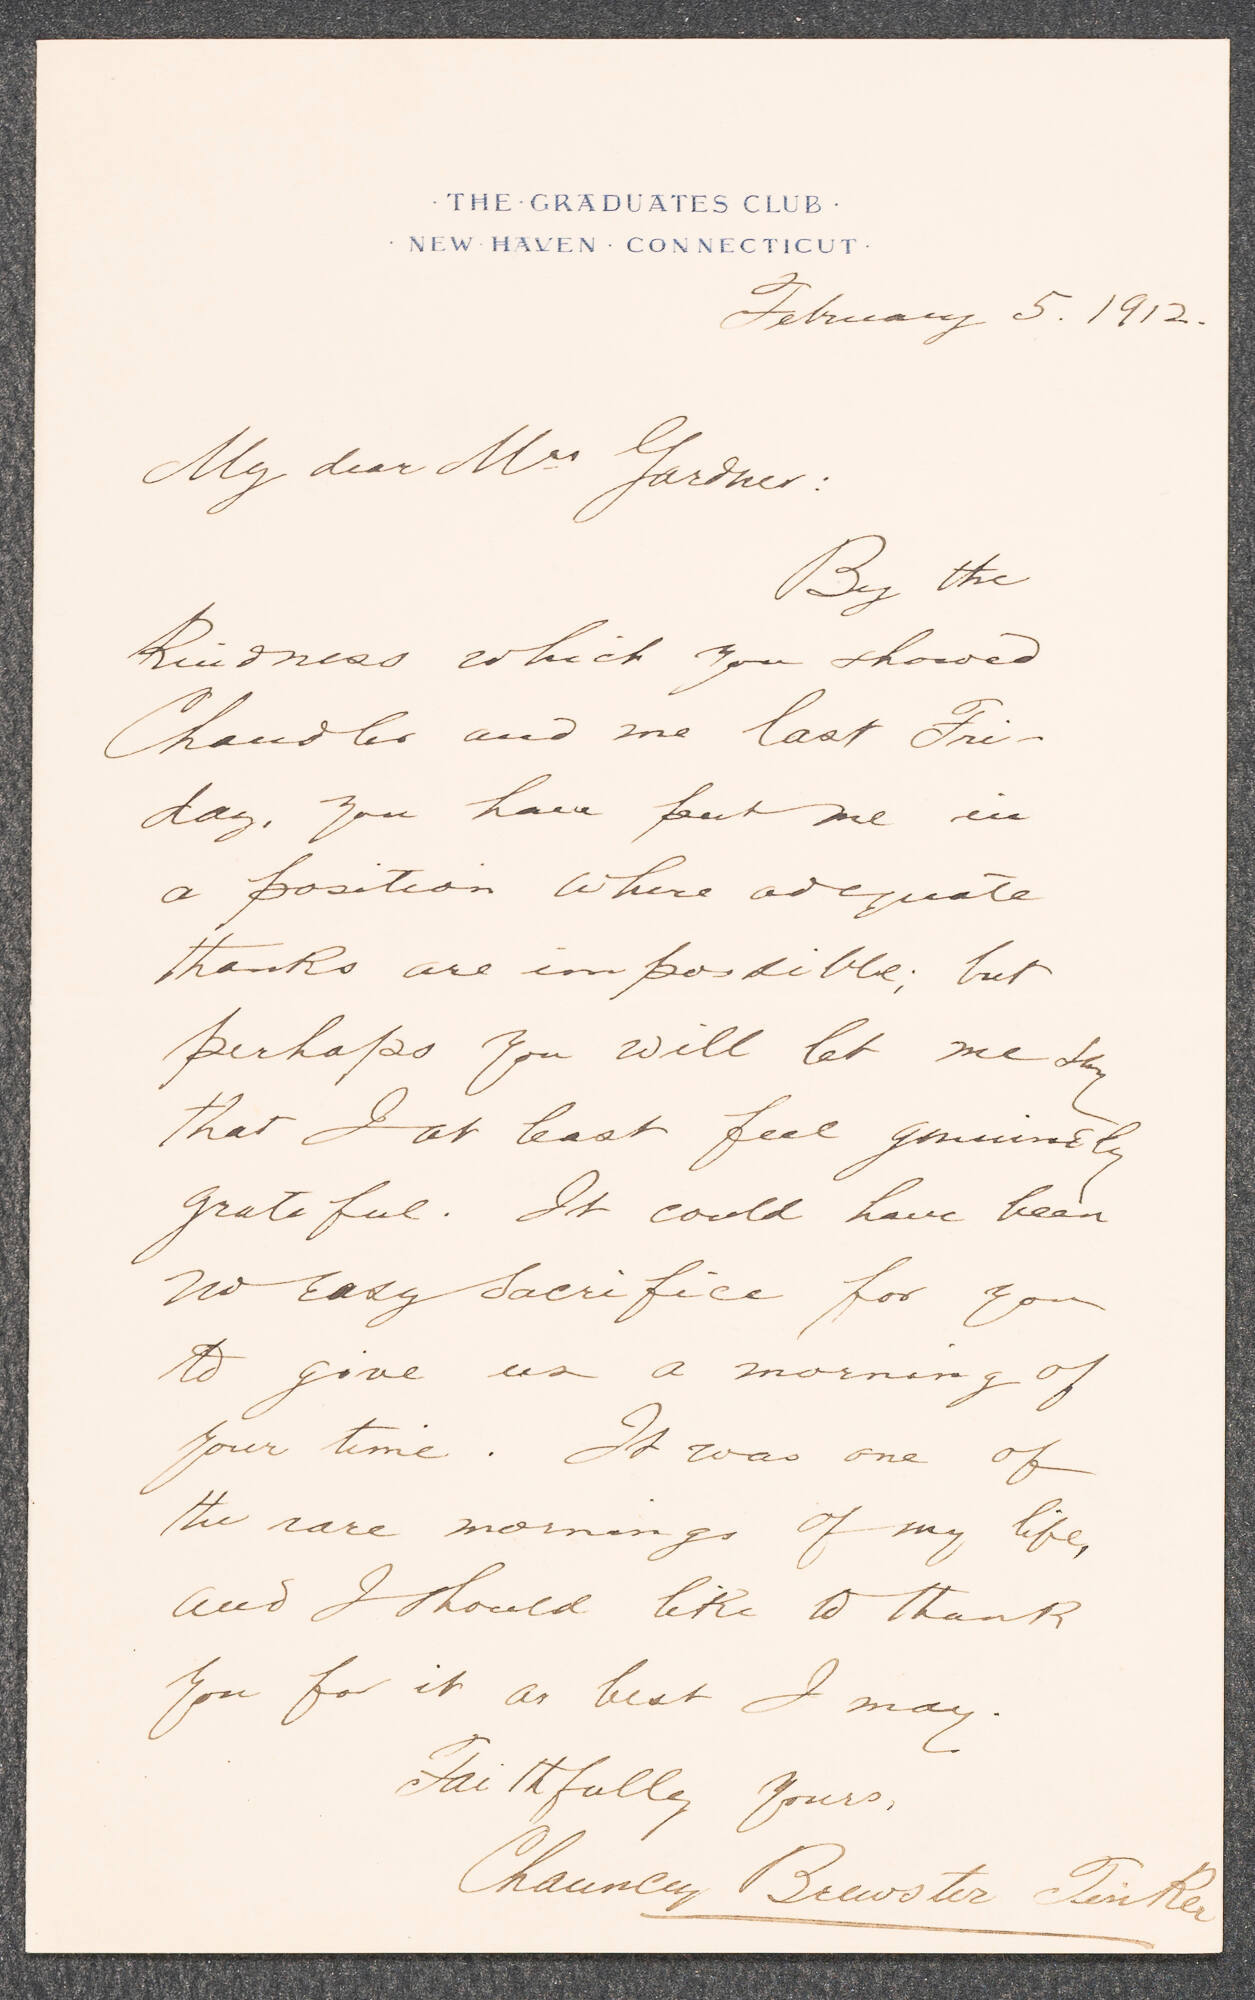 · THE · GRADUATES CLUB ·
· NEW · HAVEN · CONNECTICUT ·
February 5. 1912.
My dear Mrs Gardner:
By the
kindness which you showed
Chandler and me last Fri-
day, you have put me in
a position where adequate
thanks are impossible; but
perhaps you will let me say
that I at least feel genuinely
grateful. It could have been
no easy sacrifice for you
to give us a morning of
your time. It was one of
the rare mornings of my life,
and I should like to thank
you for it as best I may.
Faithfully yours,
Chauncey Brewster Tinker